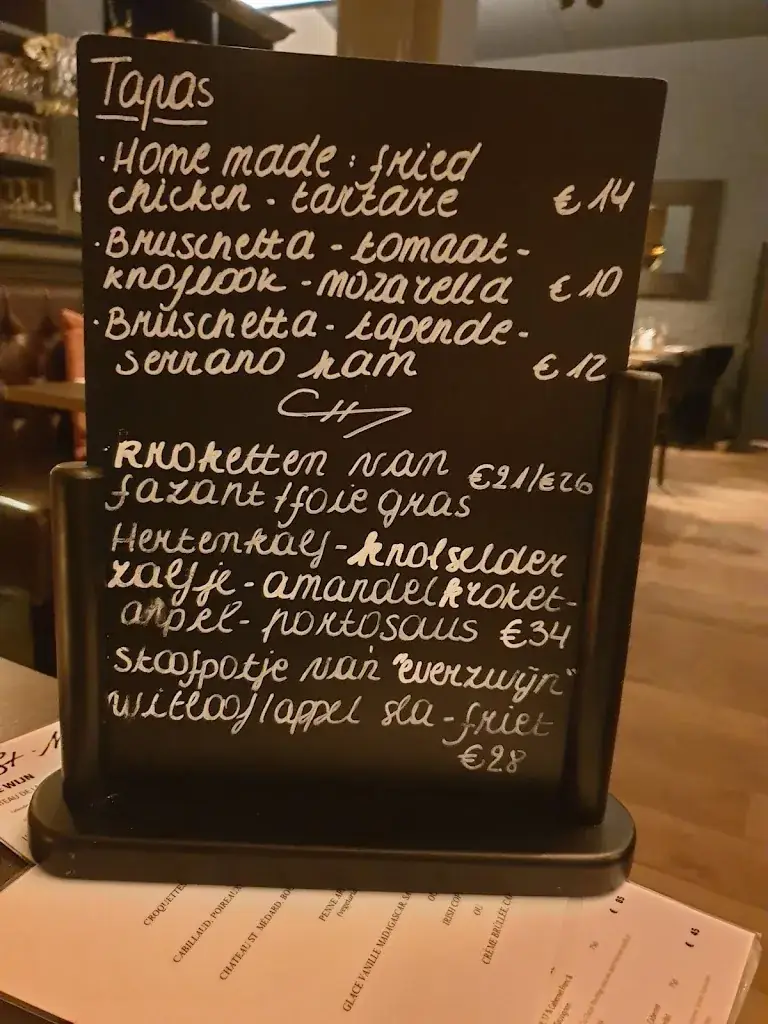 Tapas
· Home made : fried
chicken - tartare € 14
· Bruschetta - tomaat -
knoflook - mozarella € 10
· Bruschetta - tapende -
serrano ham € 12
· kroketten van €21/€26
fazant / foie gras
Hertenkalf - knolselder
zalfje - amandelkroket -
appel - portosaus €34
· stoofpotje van "everzwijn"
witloof / appel sla - friet
€28
E WIJN
CROQUETTE
CABILLAUD, POIREAUX
CHATEAU ST. MÉDARD, BO
PENNE
GLACE VANILLE MADAGASCAR, SA
OU
IRISH COF
OU
CRÈME BRÛLÉE, CA
€ 85
€ 65